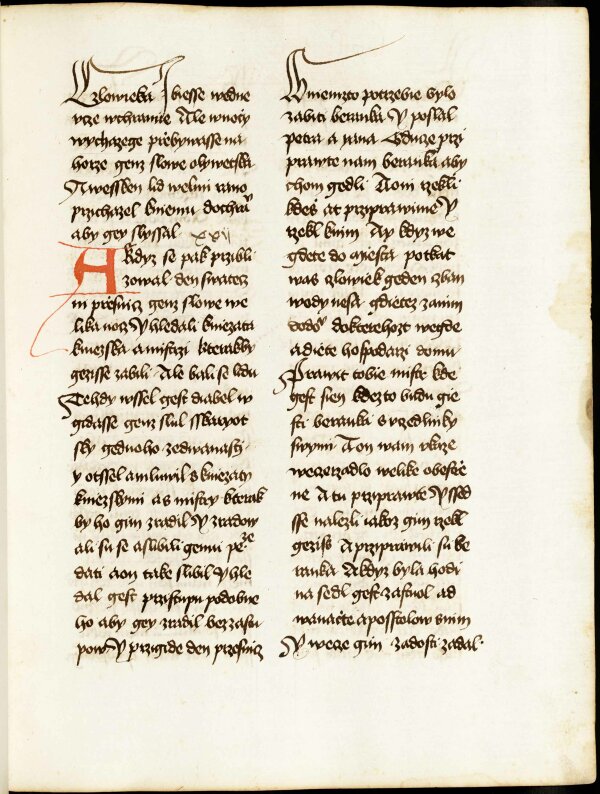 Człowieka I biesse wedne
vcze wchramie Ale wnoty
wychazege přebywasse na
horze genz slowe olywetska
A wessken lid welmi rano
przichazel knemu dochrā
aby gey slyssal xxij
A kdyz se pak przibli
zowal den swatecz
m přesnicz genz slowe we
lika nocz y hledali kniezata
kniezska a mistrzi kterakby
gezisse zabili Ale bali se lidu
Tehdy wssel gest diabel w
gidasse genz slul sskaryot
sky gednoho zedwanasti
y otssel a mluwil s kniezaty
kniezskymi a s mistry kterak
by ho gim zradil y zradow
ali su se a slibili gemu pe ze
dati a on take slibil y hle
dal gest przistupu podobne
ho aby gey zradil bez zastu
pow y przigide den przesnicz
W niemzto potrzebie bylo
zabiti beranka y poslal
petra a yana Gducze przi
prawte nam beranka aby
chom gedli A oni rzekli
kdes at przyprawime y
rzekl knim Ay kdyz we
gdete do miesta potkat
was czlowiek geden czban
wody nesa gdietez zanim
do do° do kterehozt wegde
a diete hospodarzi domu
Prawit tobie mistr kde
gest sien kdezto budu gie
sti beranka s vczedlniky
swymi A on wam vkaze
weczerzadlo welike obestře
ne A tu przyprawte y ssed
sse nalezli iakoz gim rzekl
gezis A przyprawili su be
ranka A kdyz byla hodi
na sedl gest zastuol a d
wanacte aposstolow s nim
y wecze gim zadosti zadal